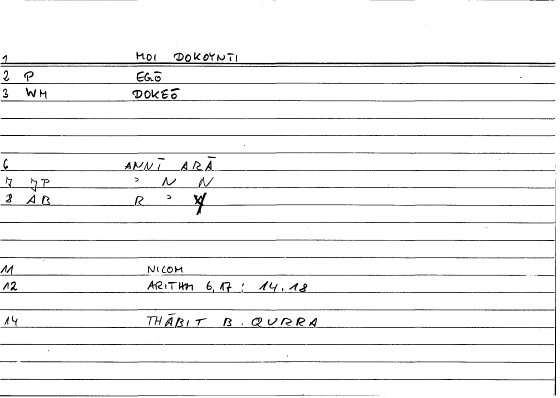 1 MOI DOKOYNTI
2 P EGŌ
3 WM DOKEŌ
6 ANNĪ ARĀ
7 JP ʾ N N
8 AB R ʾ
11 NICOM
12 ARITHM 6,17 : 14.18
14 THĀBIT B. QURRA